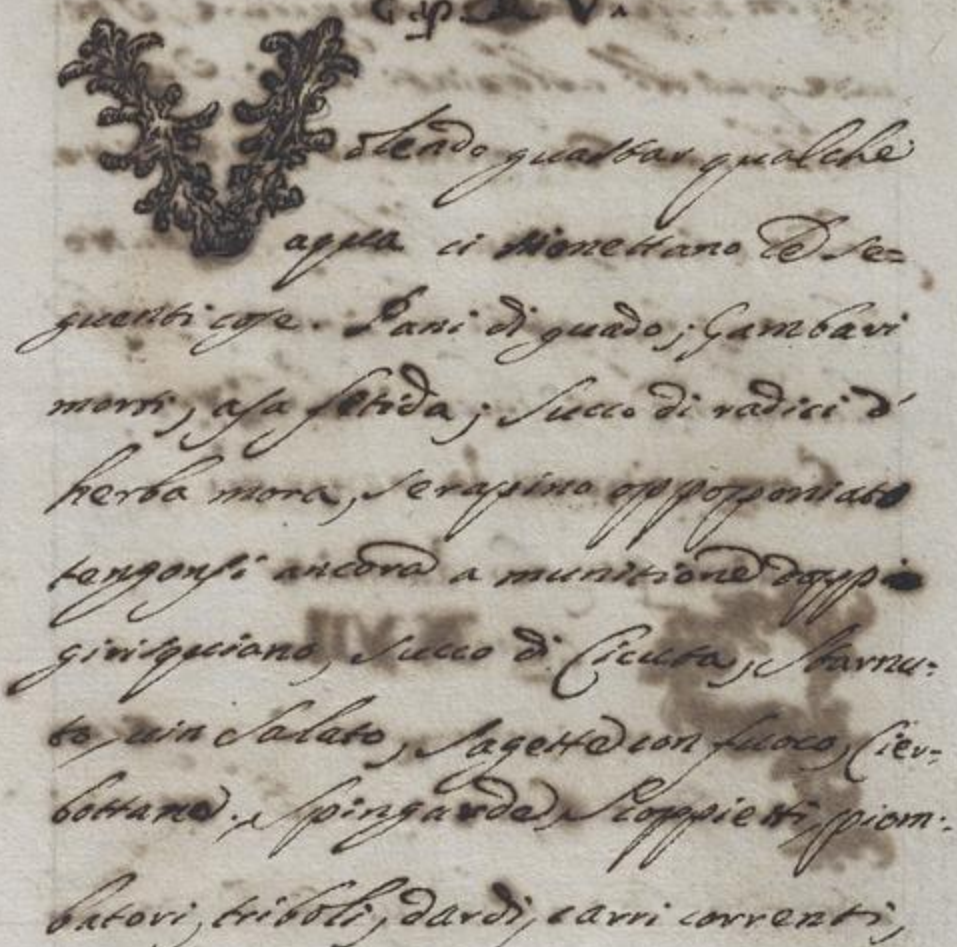 Cap. V.
Volendo guastar qualche
aqua ci si mettano le se=
guenti cose. Pani di guado; Gambari
morti, asa fetida; succo di radici d'
herba mora, serapino oppoponiato
tengonsi ancora a munitione doppi
succo di Cicuta, starnu=
to, uin salato, sagette con fuoco, Cier=
bottane, spingarde, scoppietti, piom=
batori, triboli, dardi, carri correnti,